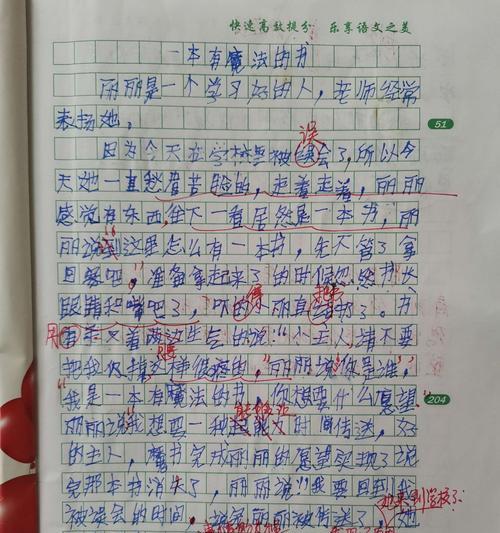 快速高效提分 乐享语文之美
一本有魔法的书
丽丽是一个学习好的人，老师经常
表扬她。
51
误
因为今天在学校里被误会了，所以今
天她一直愁眉苦脸的，走着走着，丽丽
感觉有东西，往下一看居然是一本书，丽
丽说到这里怎么有一本书，先不管了拿
回家吧。准备拿起来了的时候忽然书长
眼睛和嘴吧了，吓的丽丽真。书
着两边生气的说："小主人请不要
把我拿这样很疼的，"丽丽说"你是谁，"
"我是一本有魔法的书，你想要什么愿望
204
丽丽说"我想要一时间传送，好
的主人，魔书完成丽丽的愿望实现了说
完那本书消失了，丽丽说"我要回到我
被误会的时间，丽丽被传送了，她